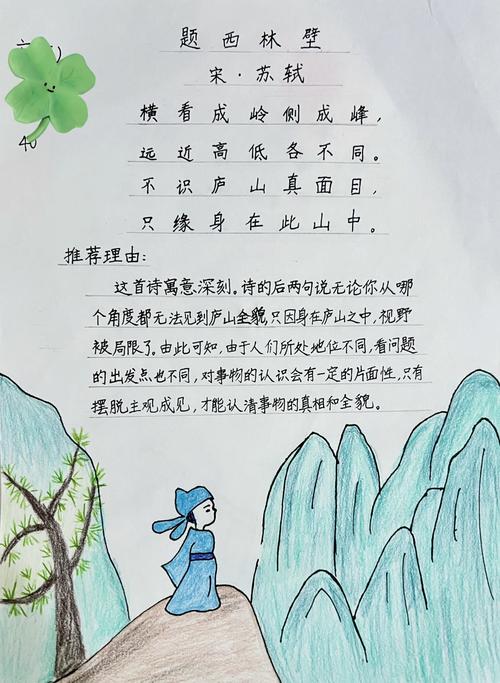 题西林壁
宋·苏轼
横看成岭侧成峰，
远近高低各不同。
不识庐山真面目，
只缘身在此山中。
推荐理由：
这首诗寓意深刻。诗的后两句说无论你从哪
个角度都无法见到庐山全貌，只因身在庐山之中，视野
被局限了。由此可知，由于人们所处地位不同，看问题
的出发点也不同，对事物的认识会有一定的片面性，只有
摆脱主观成见，才能认清事物的真相和全貌。